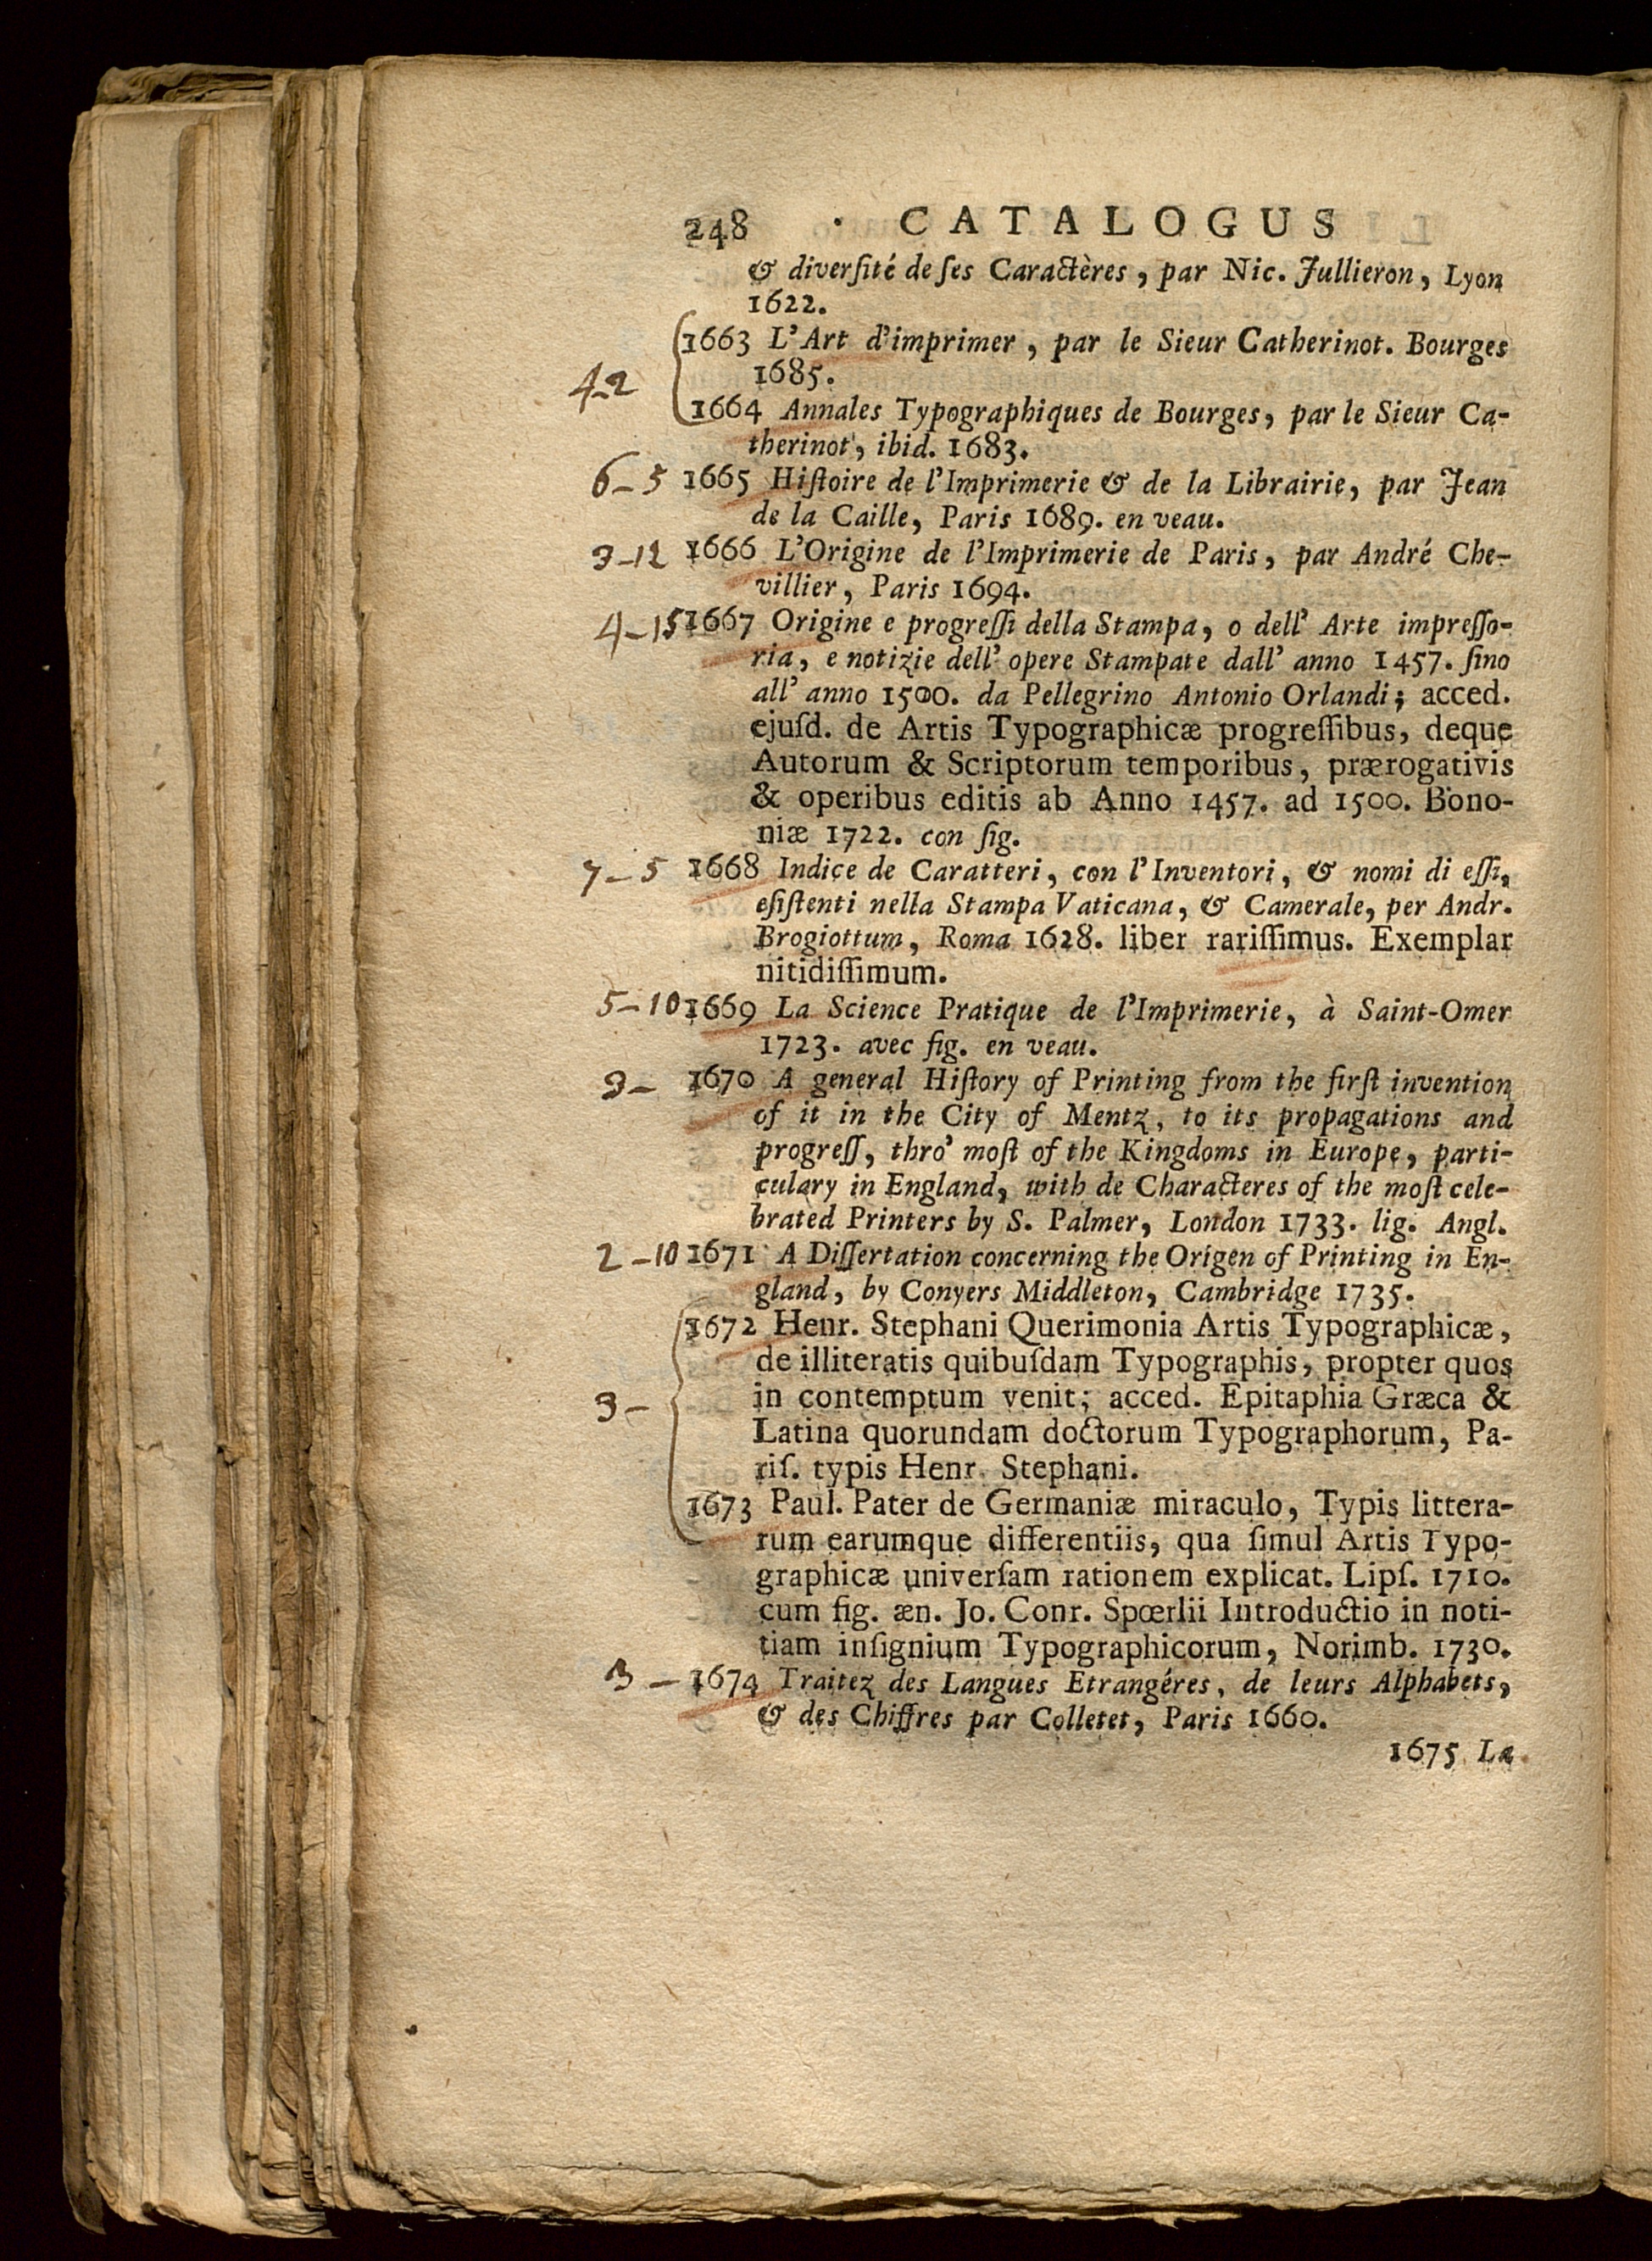 248 CATALOGUS
& diverſité de ſes Caractères, par Nic. Jullieron, Lyon
1622.
1663 L'Art d'imprimer, par le Sieur Catherinot. Bourges
4-2 1685.
1664 Annales Typographiques de Bourges, par le Sieur Ca-
therinot, ibid. 1683.
6-5 1665 Hiſtoire de l'Imprimerie & de la Librairie, par Jean
de la Caille, Paris 1689. en veau.
3-12 1666 L'Origine de l'Imprimerie de Paris, par André Che-
villier, Paris 1694.
4-15 1667 Origine e progreſſi della Stampa, o dell' Arte impreſſo-
ria, e notizie dell' opere Stampate dall' anno 1457. ſino
all' anno 1500. da Pellegrino Antonio Orlandi; acced.
ejuſd. de Artis Typographicæ progreſſibus, deque
Autorum & Scriptorum temporibus, prærogativis
& operibus editis ab Anno 1457. ad 1500. Bono-
niæ 1722. con fig.
7-5 1668 Indice de Caratteri, con l'Inventori, & nomi di eſſi,
eſiſtenti nella Stampa Vaticana, & Camerale, per Andr.
Brogiottum, Roma 1628. liber rariſſimus. Exemplar
nitidiſſimum.
5-10 1669 La Science Pratique de l'Imprimerie, à Saint-Omer
1723. avec fig. en veau.
3- 1670 A general Hiſtory of Printing from the firſt invention
of it in the City of Mentz, to its propagations and
progreſſ, thro' moſt of the Kingdoms in Europe, parti-
culary in England, with de Characteres of the moſt cele-
brated Printers by S. Palmer, London 1733. lig. Angl.
2-10 1671 A Diſſertation concerning the Origen of Printing in En-
gland, by Conyers Middleton, Cambridge 1735.
1672 Henr. Stephani Querimonia Artis Typographicæ,
de illiteratis quibuſdam Typographis, propter quos
3- in contemptum venit; acced. Epitaphia Græca &
Latina quorundam doctorum Typographorum, Pa-
riſ. typis Henr. Stephani.
1673 Paul. Pater de Germaniæ miraculo, Typis littera-
rum earumque differentiis, qua ſimul Artis Typo-
graphicæ univerſam rationem explicat. Lipſ. 1710.
cum fig. æn. Jo. Conr. Spœrlii Introductio in noti-
tiam inſignium Typographicorum, Norimb. 1730.
3 - 1674 Traitez des Langues Etrangéres, de leurs Alphabets,
& des Chiffres par Colletet, Paris 1660.
1675 La